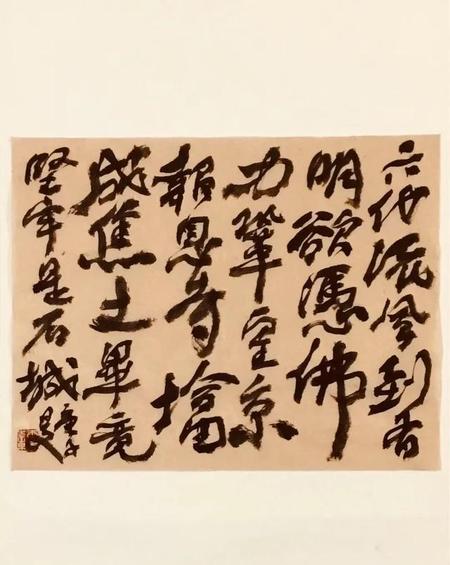 六代流風到有
明欲憑佛
力鞏皇京
報恩寺塔
成焦土畢竟
堅牢是石城
庚子